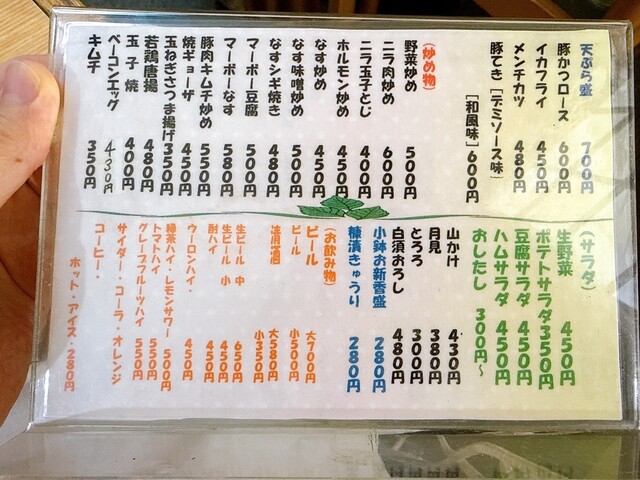 天ぷら盛 700円
豚かつロース 600円
イカフライ 450円
メンチカツ 480円
豚てき[デミソース味]
[和風味] 600円
(炒め物)
野菜炒め 500円
ニラ肉炒め 600円
ニラ玉子とじ 400円
ホルモン炒め 450円
なす炒め 450円
なす味噌炒め 500円
なすシギ焼き 480円
マーボー豆腐 500円
マーボーなす 580円
豚肉キムチ炒め 550円
焼ギョーザ 450円
玉ねぎさつま揚げ 350円
若鶏唐揚 480円
玉子焼 400円
ベーコンエッグ 430円
キムチ 350円
(サラダ)
生野菜 450円
ポテトサラダ 350円
豆腐サラダ 450円
ハムサラダ 450円
おしたし 300円〜
山かけ 430円
月見 380円
とろろ 300円
白須おろし 480円
小鉢お新香盛 280円
糠漬きゅうり 280円
(お飲み物)
ビール 大700円
ビール 小500円
清酒 大580円
小350円
生ビール 中 650円
生ビール 小 450円
酎ハイ 450円
ウーロンハイ・
緑茶ハイ・レモンサワー 500円
トマトハイ 550円
グレープフルーツハイ 550円
サイダー・コーラ・オレンジ
コーヒー・
ホット・アイス・280円